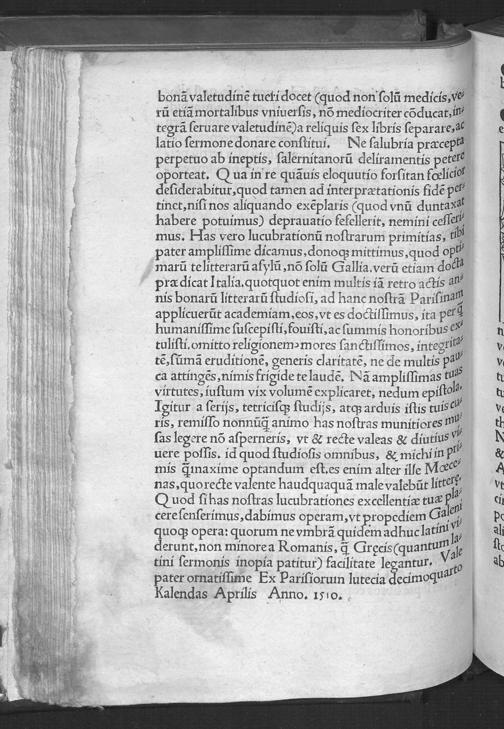 bonã valetudinẽ tueri docet (quod non solũ medicis, ve-
rũ etiã mortalibus vniuersis, nõ mediocriter cõducat, in-
tegrã seruare valetudinẽ) a reliquis sex libris separare, ac
latio sermone donare constitui. Ne salubria præcepta
perpetuo ab ineptis, salernitanorũ deliramentis petere
oporteat. Qua in re quãuis eloquutio forsitan fœlicior
desiderabitur, quod tamen ad interprætationis fidẽ per-
tinet, nisi nos aliquando exẽplaris (quod vnũ duntaxat
habere potuimus) deprauatio fefellerit, nemini cesseri-
mus. Has vero lucubrationũ nostrarum primitias, tibi
pater amplissime dicamus, donoqꝫ mittimus, quod opti-
marũ te litterarũ asylũ, nõ solũ Gallia. verũ etiam docta
prædicat Italia. quotquot enim multis iã retro actis an-
nis bonarũ litterarũ studiosi, ad hanc nostrã Parisinam
applicuerũt academiam, eos, vt es doctissimus, ita per q̃
humanissime suscepisti, fouisti, ac summis honoribus ex-
tulisti. omitto religionem, mores sanctissimos, integrita-
tẽ, sũmã eruditionẽ, generis claritatẽ, ne de multis pau-
ca attingẽs, nimis frigide te laudẽ. Nã amplissimas tuas
virtutes, iustum vix volumẽ explicaret, nedum epistola.
Igitur a serijs, tetricisqꝫ studijs, atqꝫ arduis istis tuis cu-
ris, remisso nonnũq̃ animo has nostras munitiores mu-
sas legere nõ asperneris, vt & recte valeas & diutius vi-
uere possis. id quod studiosis omnibus, & michi in pri-
mis q̃maxime optandum est. es enim alter ille Mœce-
nas, quo recte valente haudquaquã male valebũt litterę.
Quod si has nostras lucubrationes excellentiæ tuæ pla-
cere senserimus, dabimus operam, vt propediem Galeni
quoqꝫ opera: quorum ne vmbrã quidem adhuc latini vi-
derunt, non minore a Romanis, q̃ Gręcis (quantum la-
tini sermonis inopia patitur) facilitate legantur. Vale
pater ornatissime Ex Parisiorum lutecia decimoquarto
Kalendas Aprilis Anno. 1510.